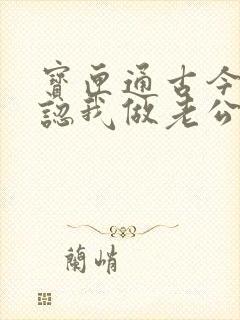 寶匣通古今
認我做老公
蘭峭